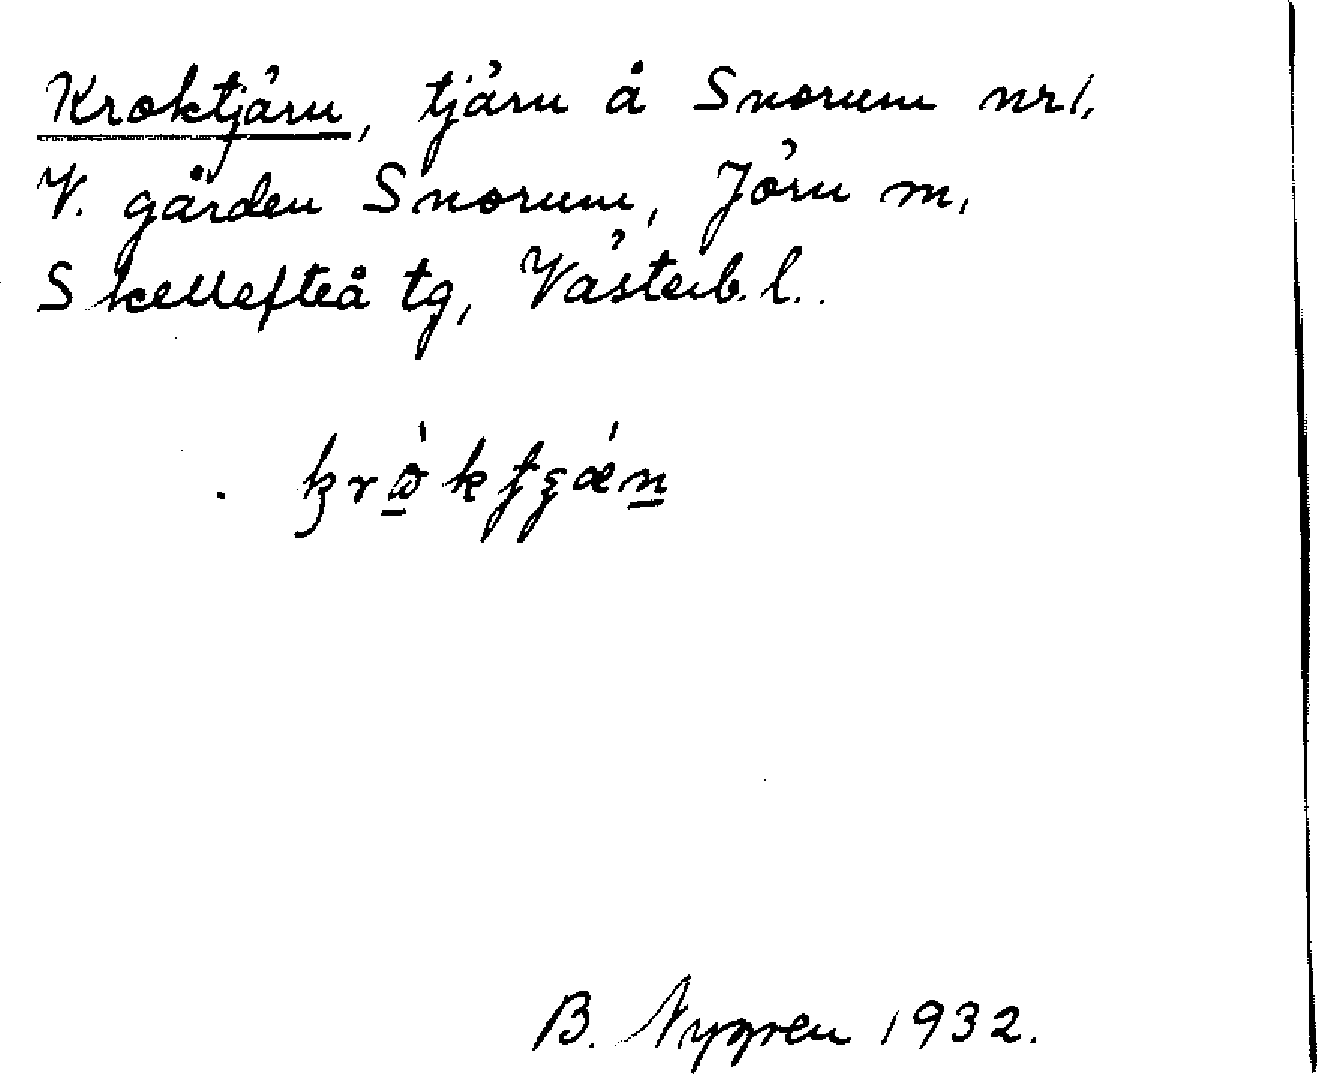 Kroktjärn, tjärn å Snorum nr 1,
V. gården Snorum, Jörn m,
Skellefteå tg, Västerb. l.
B. Nygren 1932.